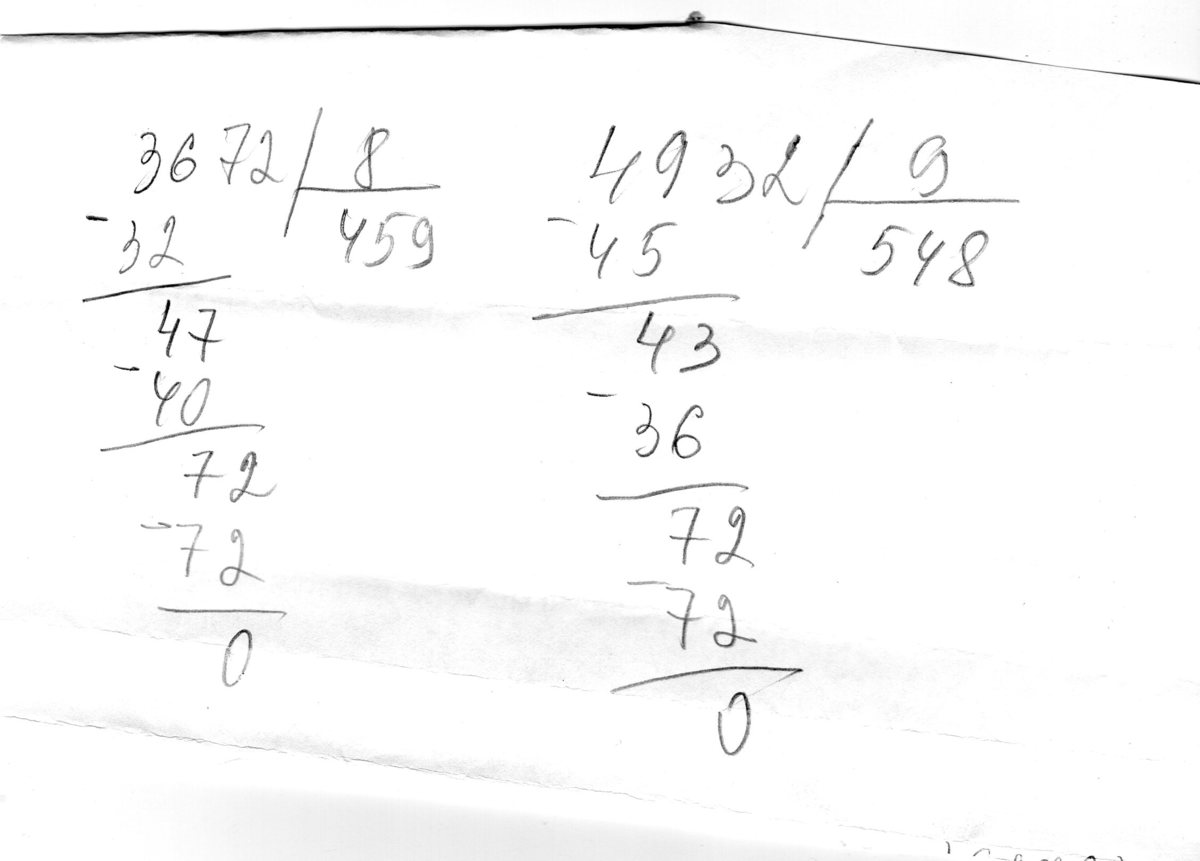 3672 8
-32 459
47
-40
72
-72
0
4932 9
-45 548
43
-36
72
-72
0